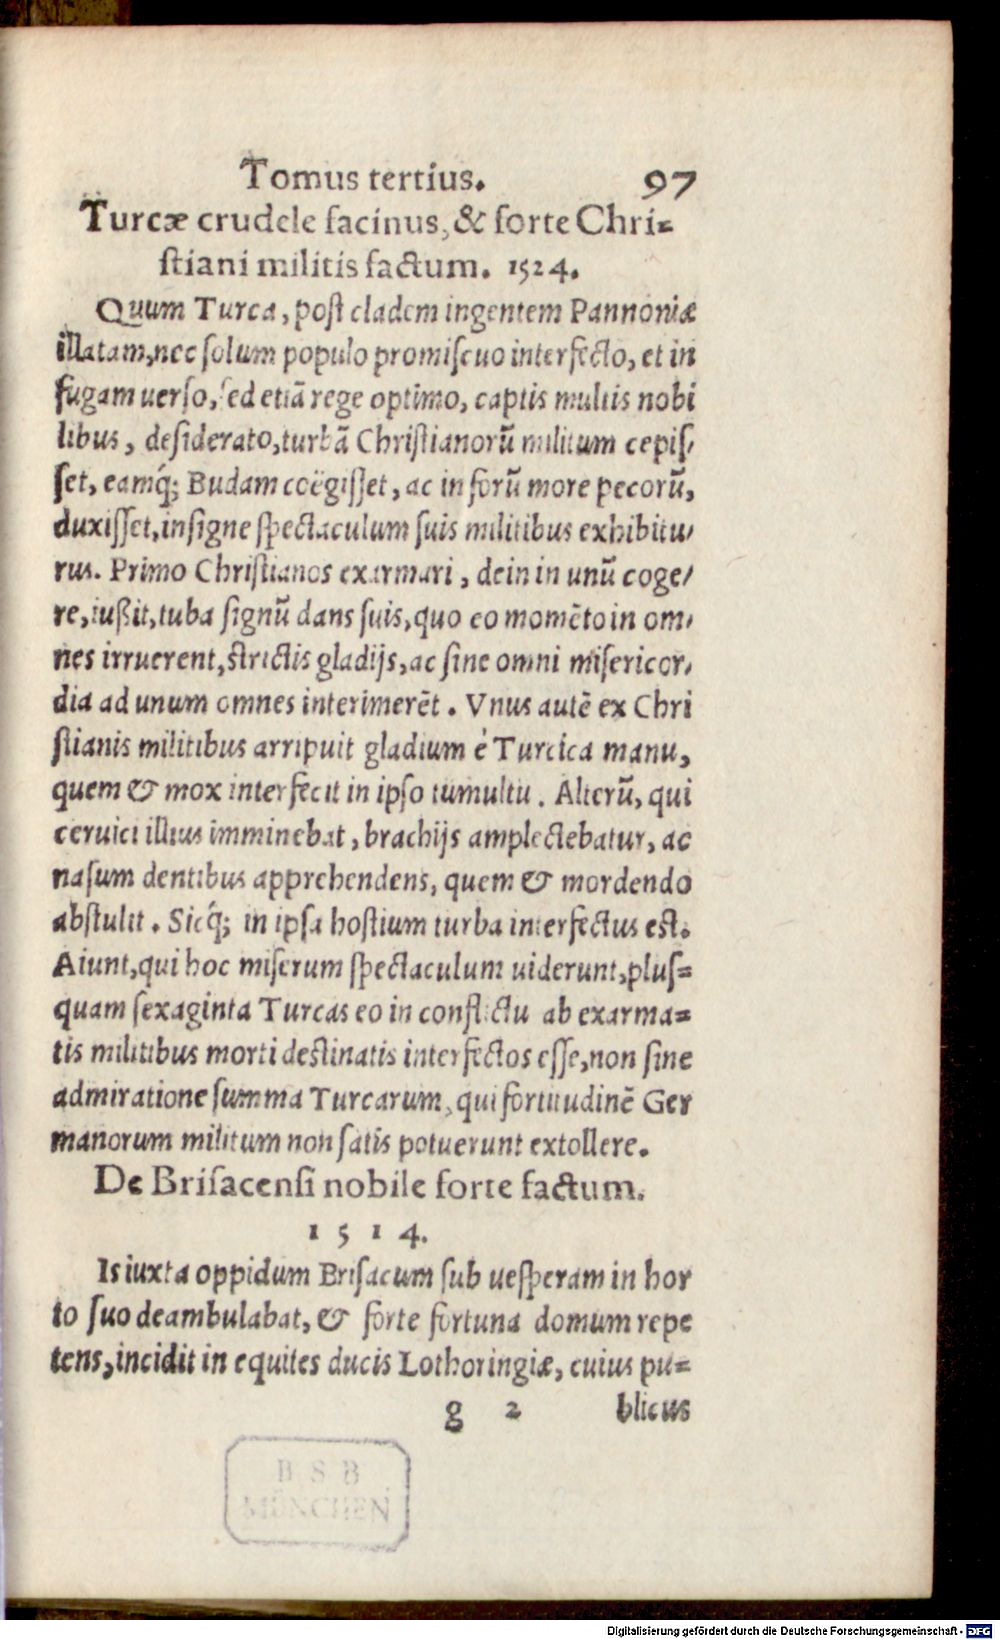 Tomus tertius. 97
Turcæ crudele facinus, & forte Chri-
stiani militis factum. 1524.
Quum Turca, post cladem ingentem Pannoniæ
illatam, nec solum populo promiscuo interfecto, et in
fugam uerso, sed etiā rege optimo, captis multis nobi
libus, desiderato, turbā Christianorū militum cepis-
set, eamq́; Budam coëgisset, ac in forū more pecorū,
duxisset, insigne spectaculum suis militibus exhibitu-
rus. Primo Christianos exarmari, dein in unū coge-
re, iußit, tuba signū dans suis, quo eo momēto in om-
nes irruerent, strictis gladijs, ac sine omni misericor-
dia ad unum omnes interimerēt. Vnus autē ex Chri
stianis militibus arripuit gladium è Turcica manu,
quem & mox interfecit in ipso tumultu. Alterū, qui
ceruici illius imminebat, brachijs amplectebatur, ac
nasum dentibus apprehendens, quem & mordendo
abstulit. Sicq́; in ipsa hostium turba interfectus est.
Aiunt, qui hoc miserum spectaculum uiderunt, plus-
quam sexaginta Turcas eo in conflictu ab exarma-
tis militibus morti destinatis interfectos esse, non sine
admiratione summa Turcarum, qui fortitudinē Ger
manorum militum non satis potuerunt extollere.
De Brisacensi nobile forte factum.
1514.
Is iuxta oppidum Brisacum sub uesperam in hor
to suo deambulabat, & forte fortuna domum repe
tens, incidit in equites ducis Lothoringiæ, cuius pu-
g 2 blicus
BSB
MÜNCHEN
Digitalisierung gefördert durch die Deutsche Forschungsgemeinschaft - DFG